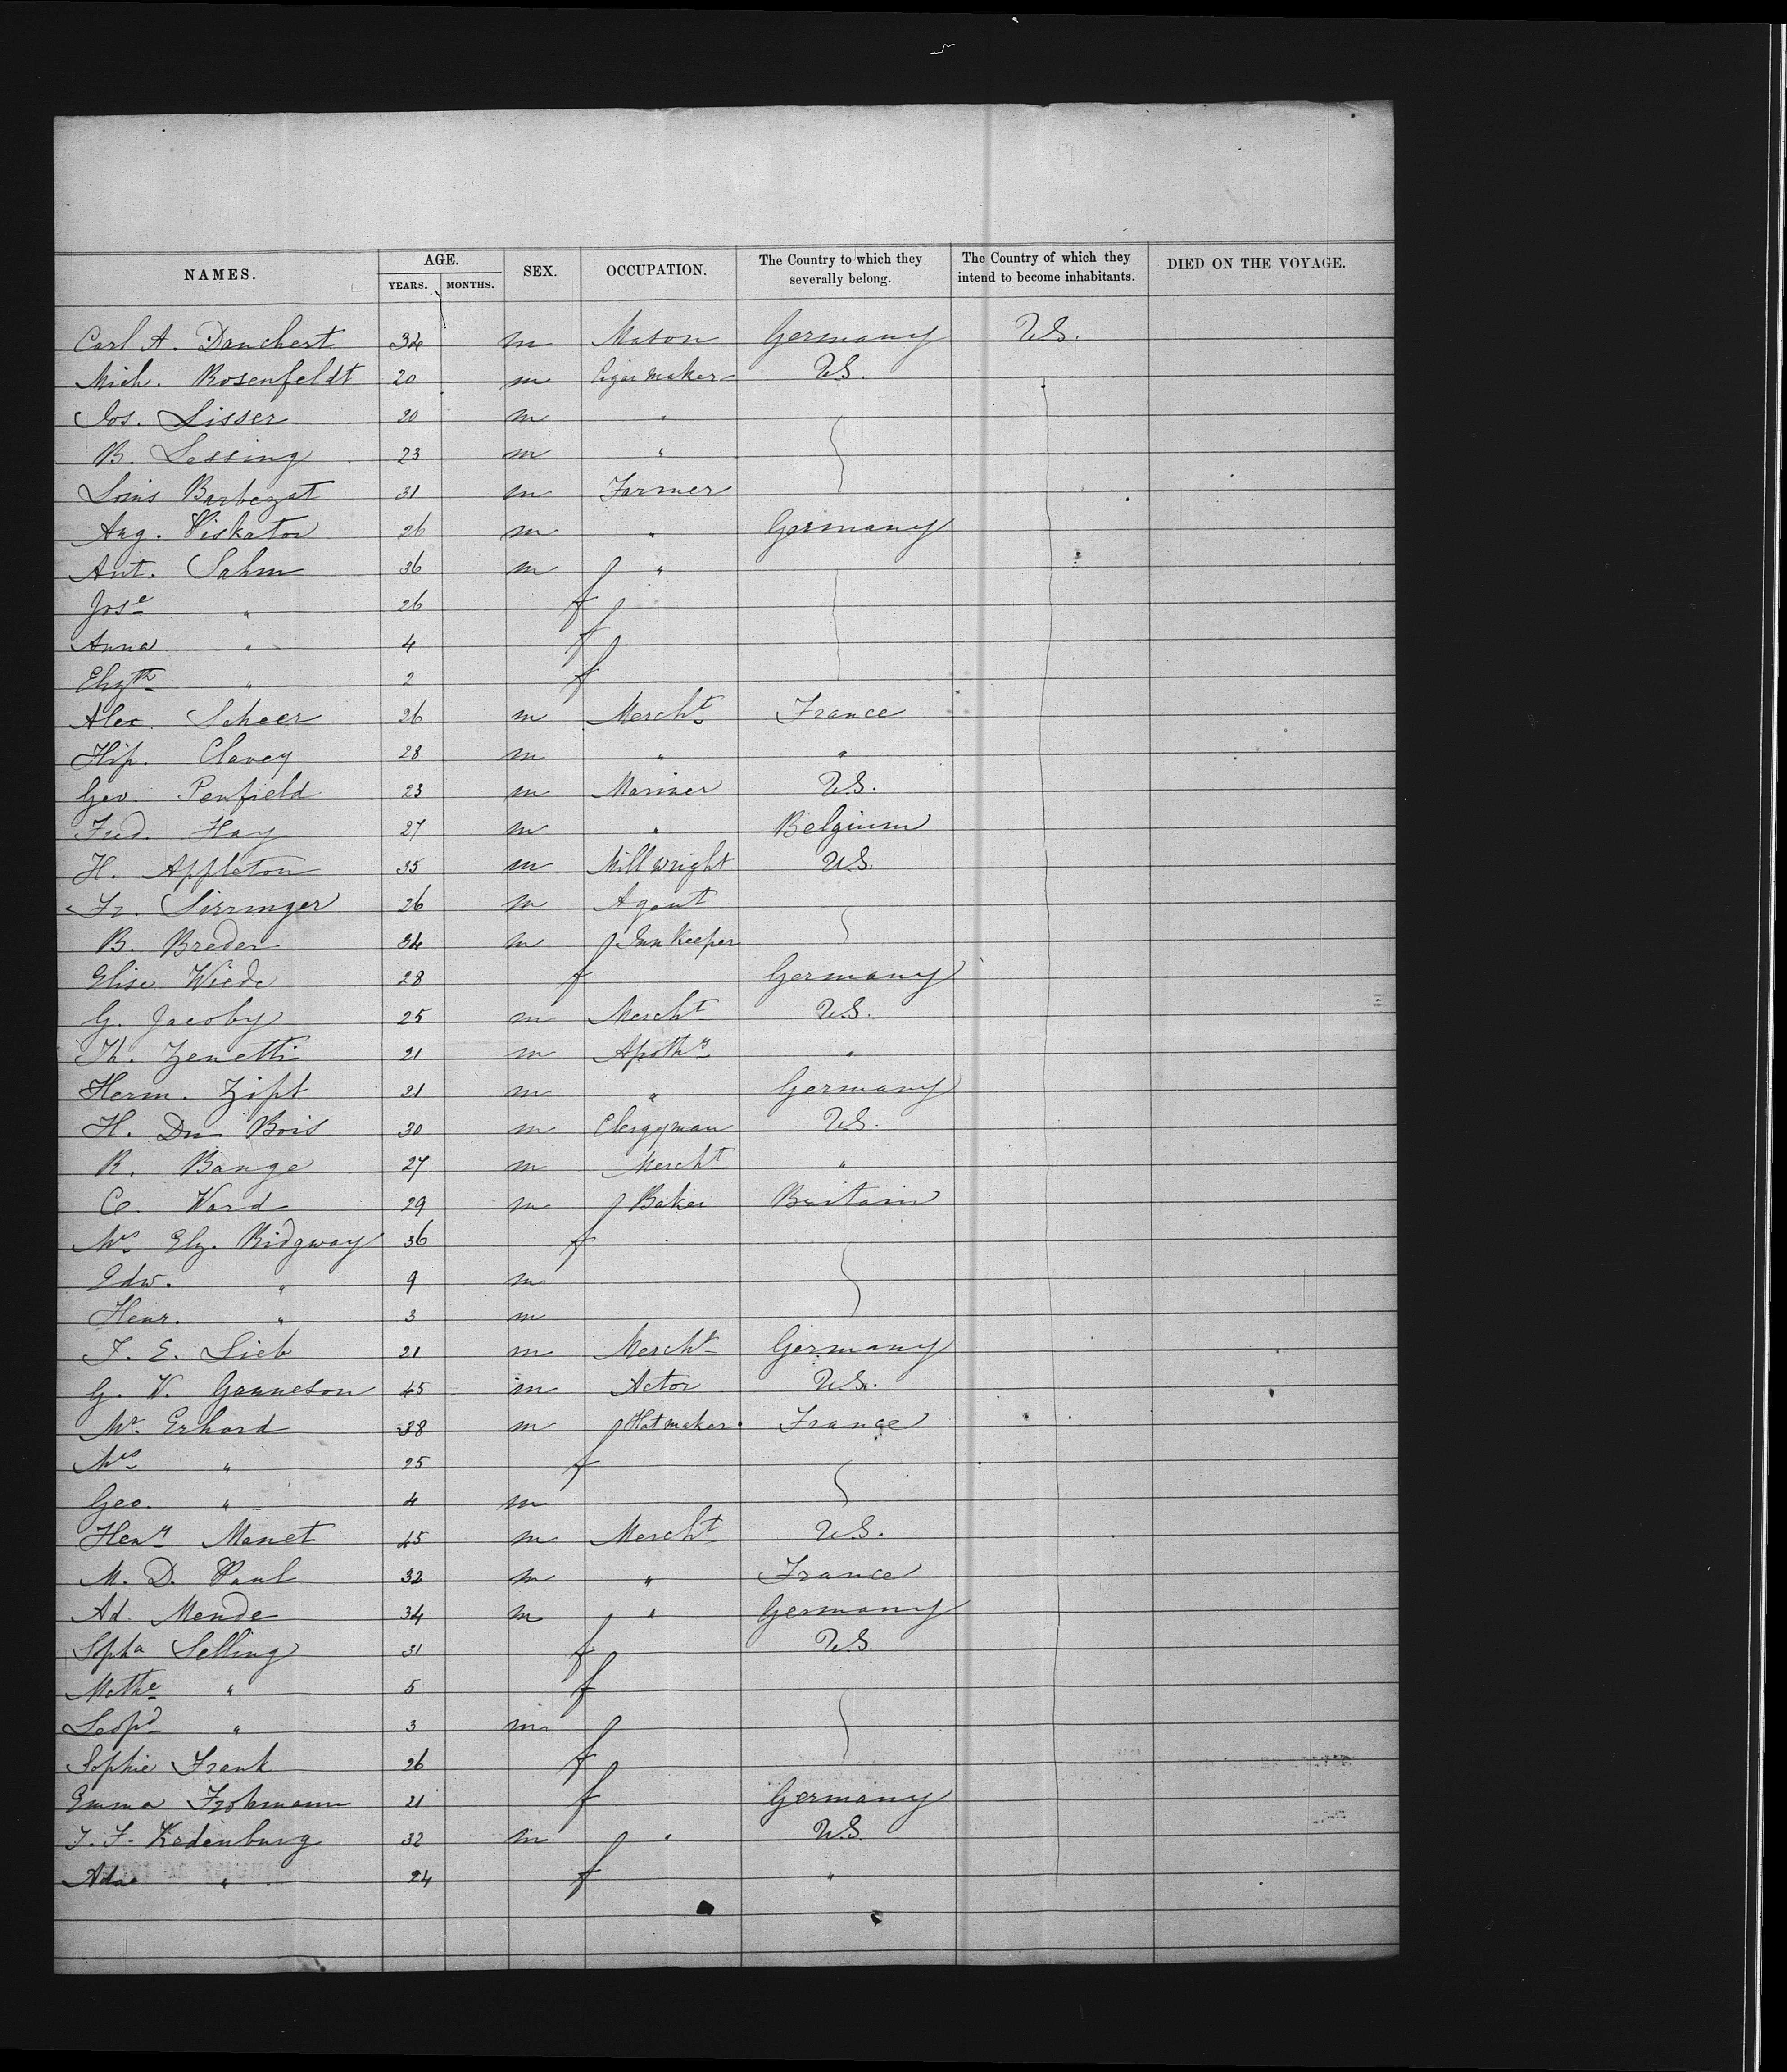 NAMES. AGE. YEARS. MONTHS. SEX. OCCUPATION. The Country to which they severally belong. The Country of which they intend to become inhabitants. DIED ON THE VOYAGE.
Carl A. Danchert 34 m Mason Germany U.S.
Mich. Rosenfeldt 20 m Cigar maker U.S.
Jos. Lisser 20 m "
B. Lessing 23 m "
Louis Barbezat 31 m Farmer
Aug. Piskator 26 m " Germany
Ant. Sahm 36 m "
Jose " 26 f
Anna " 4 f
Elizth " 2 f
Alex. Scheer 26 m Mercht France
Hip. Clavey 28 m " "
Geo. Penfield 23 m Mariner U.S.
Fred. Hay 27 m " Belgium
H. Appleton 35 m Millwright U.S.
Fr. Sirringer 26 m Agent
B. Breder 34 m Inn Keeper
Elise Wiede 28 f Germany
G. Jacoby 25 m Mercht U.S.
Th. Zenetti 21 m Apothy "
Herm. Zipt 21 m " Germany
H. Du Bois 30 m Clergyman U.S.
R. Bange 27 m Mercht "
C. Ward 29 m Baker Britain
Mrs Elz. Ridgway 36 f
Edw. " 9 m
Henr. " 3 m
F. E. Lieb 21 m Mercht Germany
G. V. Ganneson 45 m Actor U.S.
Mr. Erhard 38 m Hatmaker France
Mrs " 25 f
Geo. " 4 m
Heny Manet 45 m Mercht U.S.
M. D. Paul 32 m " France
Ad. Mende 34 m " Germany
Spha Selling 31 f U.S.
Mathe " 5 f
Leopd " 3 m
Sophie Frank 26 f
Emma 21 f Germany
J. F. Kodenburg 32 m " U.S.
Ada " 24 f "